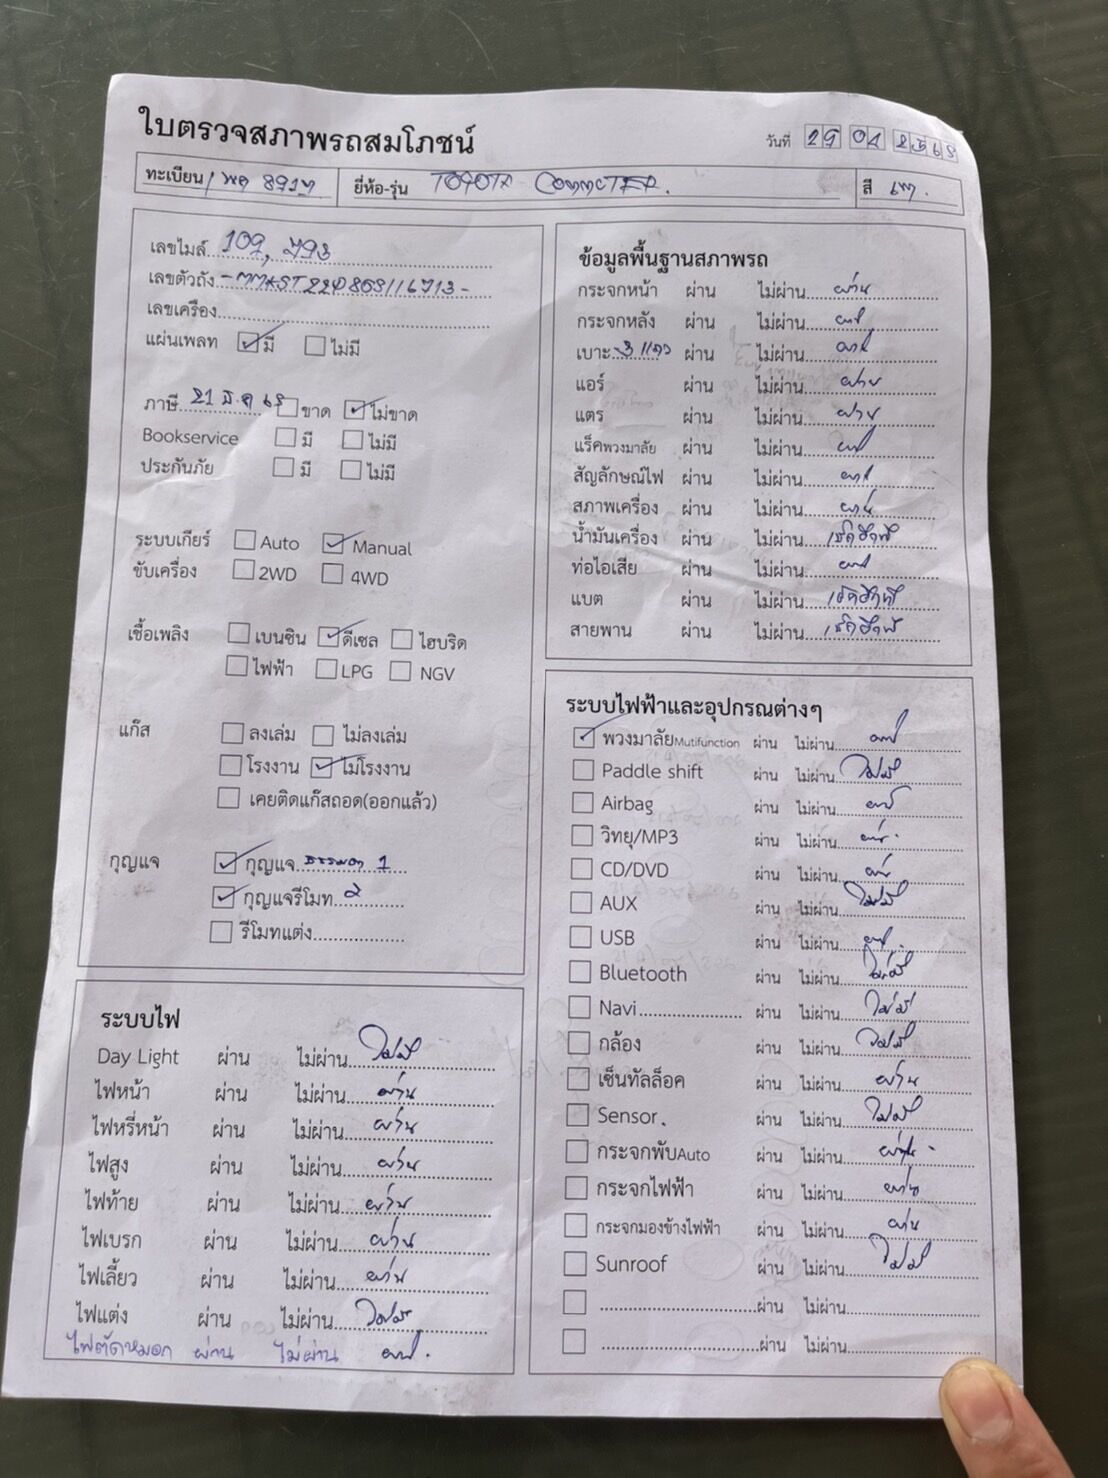 ใบตรวจสภาพรถสมโภชน์
วันที่ 29 04 2565
ทะเบียน ยี่ห้อ-รุ่น TOYOTA COMMUTER. สี เทา.
เลขไมล์ 109, 793
เลขตัวถัง
เลขเครื่อง
แผ่นเพลท มี ไม่มี
ภาษี 21 ธ.ค 65 ขาด ไม่ขาด
Bookservice มี ไม่มี
ประกันภัย มี ไม่มี
ระบบเกียร์ Auto Manual
ขับเครื่อง 2WD 4WD
เชื้อเพลิง เบนซิน ดีเซล ไฮบริด
ไฟฟ้า LPG NGV
แก๊ส ลงเล่ม ไม่ลงเล่ม
โรงงาน ไม่โรงงาน
เคยติดแก๊สถอด(ออกแล้ว)
กุญแจ กุญแจ ธรรมดา 1
กุญแจรีโมท 2
รีโมทแต่ง
ระบบไฟ
Day Light ผ่าน ไม่ผ่าน ไม่มี
ไฟหน้า ผ่าน ไม่ผ่าน ผ่าน
ไฟหรี่หน้า ผ่าน ไม่ผ่าน ผ่าน
ไฟสูง ผ่าน ไม่ผ่าน ผ่าน
ไฟท้าย ผ่าน ไม่ผ่าน ผ่าน
ไฟเบรก ผ่าน ไม่ผ่าน ผ่าน
ไฟเลี้ยว ผ่าน ไม่ผ่าน ผ่าน
ไฟแต่ง ผ่าน ไม่ผ่าน ไม่มี
ไฟตัดหมอก ผ่าน ไม่ผ่าน ผ่าน.
ข้อมูลพื้นฐานสภาพรถ
กระจกหน้า ผ่าน ไม่ผ่าน ผ่าน
กระจกหลัง ผ่าน ไม่ผ่าน ผ่าน
เบาะ 3 แถว ผ่าน ไม่ผ่าน ผ่าน
แอร์ ผ่าน ไม่ผ่าน ผ่าน
แตร ผ่าน ไม่ผ่าน ผ่าน
แร็คพวงมาลัย ผ่าน ไม่ผ่าน ผ่าน
สัญลักษณ์ไฟ ผ่าน ไม่ผ่าน ผ่าน
สภาพเครื่อง ผ่าน ไม่ผ่าน ผ่าน
น้ำมันเครื่อง ผ่าน ไม่ผ่าน เช็คอีกที
ท่อไอเสีย ผ่าน ไม่ผ่าน ผ่าน
แบต ผ่าน ไม่ผ่าน เช็คอีกที
สายพาน ผ่าน ไม่ผ่าน เช็คอีกที
ระบบไฟฟ้าและอุปกรณต่างๆ
พวงมาลัยMutifunction ผ่าน ไม่ผ่าน ผ่าน
Paddle shift ผ่าน ไม่ผ่าน ไม่มี
Airbag ผ่าน ไม่ผ่าน ผ่าน
วิทยุ/MP3 ผ่าน ไม่ผ่าน ผ่าน.
CD/DVD ผ่าน ไม่ผ่าน ผ่าน
AUX ผ่าน ไม่ผ่าน ไม่มี
USB ผ่าน ไม่ผ่าน ผ่าน.
Bluetooth ผ่าน ไม่ผ่าน ไม่มี
Navi ผ่าน ไม่ผ่าน ไม่มี
กล้อง ผ่าน ไม่ผ่าน ไม่มี
เซ็นทัลล็อค ผ่าน ไม่ผ่าน ผ่าน
Sensor. ผ่าน ไม่ผ่าน ไม่มี
กระจกพับAuto ผ่าน ไม่ผ่าน ผ่าน
กระจกไฟฟ้า ผ่าน ไม่ผ่าน ผ่าน
กระจกมองข้างไฟฟ้า ผ่าน ไม่ผ่าน ผ่าน
Sunroof ผ่าน ไม่ผ่าน ไม่มี
ผ่าน ไม่ผ่าน
ผ่าน ไม่ผ่าน